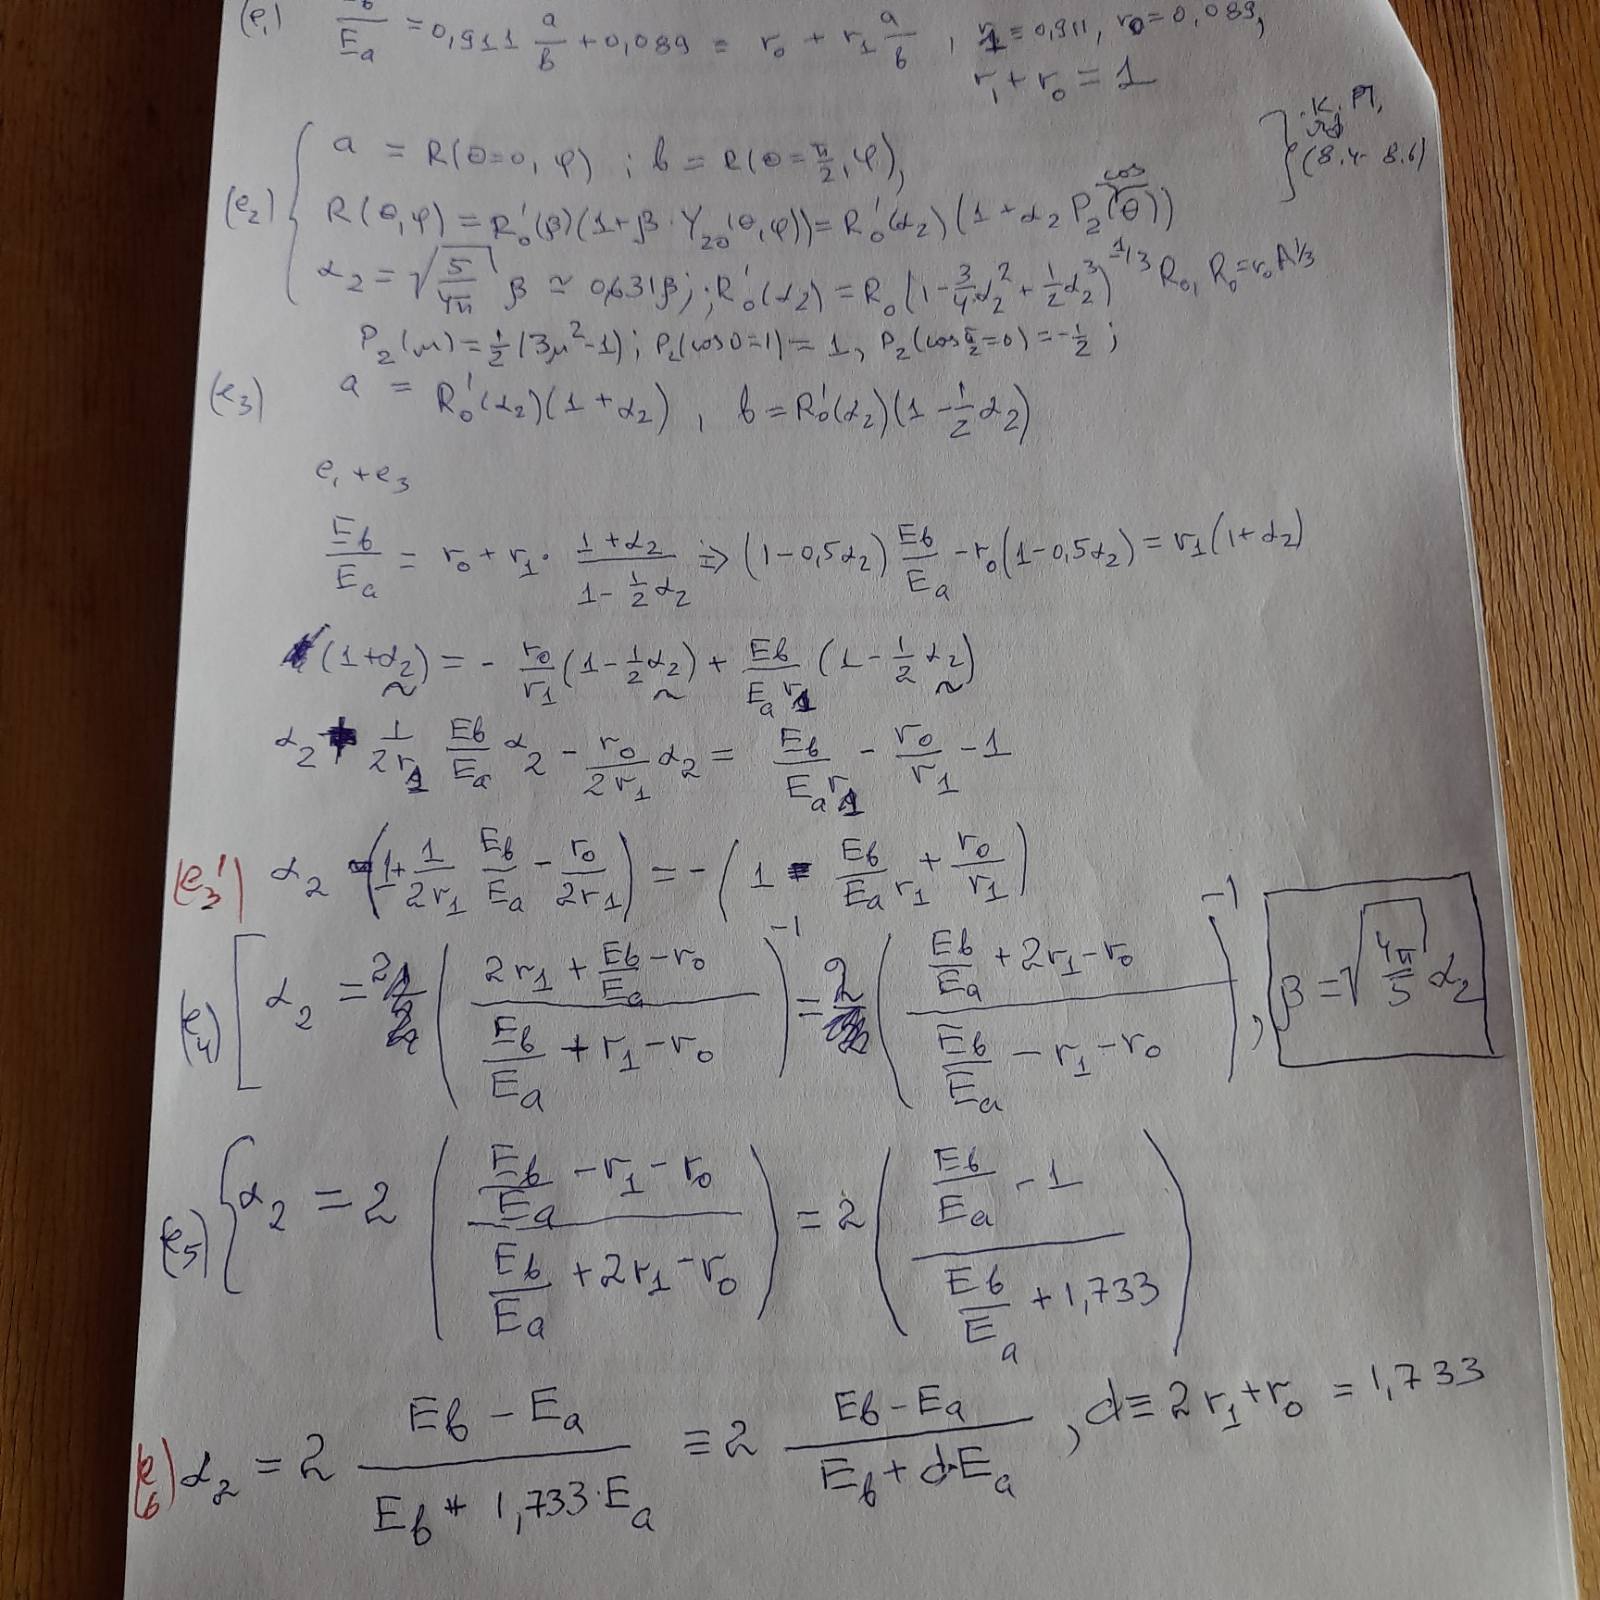 (e₁) E_b/E_a = 0,911 a/b + 0,089 = r₀ + r₁ a/b , r₁ = 0,911, r₀ = 0,089,
r₁ + r₀ = 1
(e₂) { a = R(θ=0, φ) ; b = R(θ=π/2, φ), } (8.4-8.6)
R(θ,φ) = R₀'(β)(1+β·Y₂₀(θ,φ)) = R₀'(α₂)(1+α₂ P₂(cos θ))
α₂ = √(5/4π) β ≃ 0,631β; ; R₀'(α₂) = R₀(1-3/4 α₂² + 1/2 α₂³)^(-1/3) R₀, R₀ = r₀A^(1/3)
P₂(μ) = 1/2 (3μ²-1) ; P₂(cos0=1) = 1, P₂(cos π/2=0) = -1/2 ;
(e₃) a = R₀'(α₂)(1+α₂) , b = R₀'(α₂)(1-1/2 α₂)
e₁ + e₃
E_b/E_a = r₀ + r₁ · (1+α₂)/(1-1/2 α₂) ⇒ (1-0,5α₂) E_b/E_a - r₀(1-0,5α₂) = r₁(1+α₂)
(1+α₂) = - r₀/r₁ (1-1/2 α₂) + E_b/(E_a r₁) (1-1/2 α₂)
α₂ + 1/(2r₁) E_b/E_a α₂ - r₀/(2r₁) α₂ = E_b/(E_a r₁) - r₀/r₁ - 1
(e₃') α₂ (1 + 1/(2r₁) E_b/E_a - r₀/(2r₁)) = -(1 - E_b/(E_a r₁) + r₀/r₁)
(e₄) [ α₂ = 2 ((2r₁ + E_b/E_a - r₀)/(E_b/E_a + r₁ - r₀))⁻¹ = 2 ((E_b/E_a + 2r₁ - r₀)/(E_b/E_a - r₁ - r₀))⁻¹ , β = √(4π/5) α₂
(e₅) { α₂ = 2 ((E_b/E_a - r₁ - r₀)/(E_b/E_a + 2r₁ - r₀)) = 2 ((E_b/E_a - 1)/(E_b/E_a + 1,733))
(e₆) α₂ = 2 (E_b - E_a)/(E_b + 1,733·E_a) ≡ 2 (E_b - E_a)/(E_b + d·E_a) , d ≡ 2r₁ + r₀ = 1,733